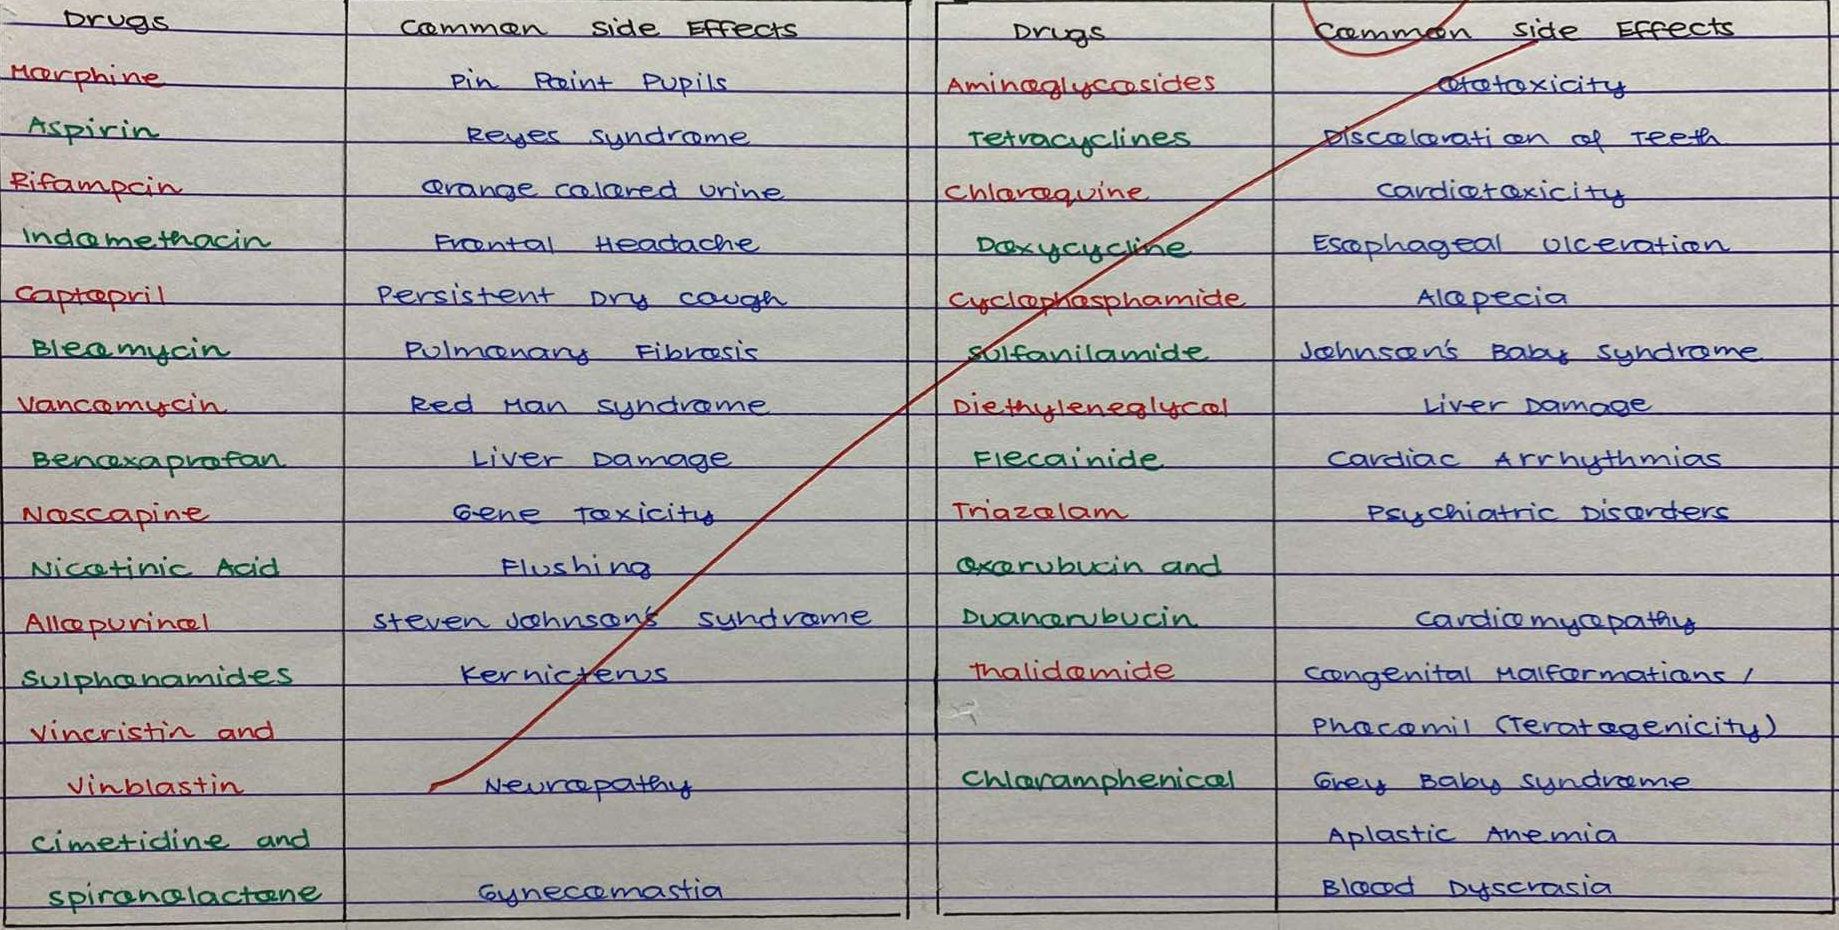 Drugs Common Side Effects
Morphine Pin Point Pupils
Aspirin Reyes Syndrome
Rifampcin Orange colored Urine
Indomethacin Frontal Headache
Captopril Persistent Dry Cough
Bleomycin Pulmonary Fibrosis
Vancomycin Red Man Syndrome
Benoxaprofan Liver Damage
Noscapine Gene Toxicity
Nicotinic Acid Flushing
Allopurinol Steven Johnson's Syndrome
Sulphonamides Kernicterus
Vincristin and
Vinblastin Neuropathy
Cimetidine and
Spironolactone Gynecomastia
Drugs Common Side Effects
Aminoglycosides Ototoxicity
Tetracyclines Discoloration of Teeth
Chloroquine Cardiotoxicity
Doxycycline Esophageal Ulceration
Cyclophosphamide Alopecia
Sulfanilamide Johnson's Baby Syndrome
Diethyleneglycol Liver Damage
Flecainide Cardiac Arrhythmias
Triazolam Psychiatric Disorders
Oxorubucin and
Duanorubucin Cardiomyopathy
Thalidomide Congenital Malformations /
Phocomil (Teratogenicity)
Chloramphenicol Grey Baby Syndrome
Aplastic Anemia
Blood Dyscrasia